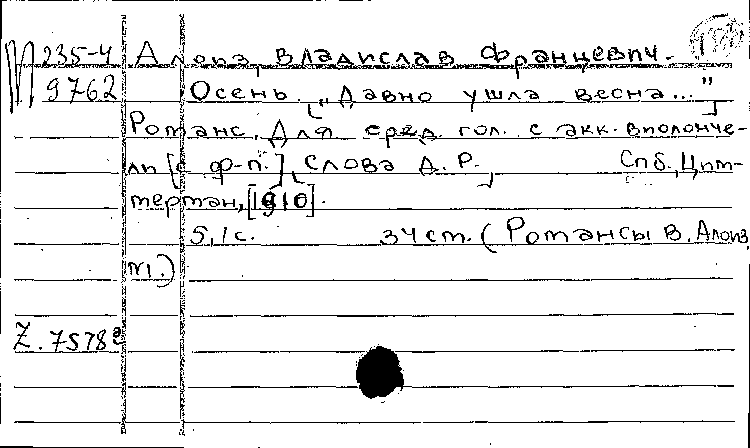 М 235-4 Алоиз, Владислав Францевич.
9762 Осень. "Давно ушла весна..."
Романс. Для сред. гол. с акк. виолонче-
ли [с ф-п.] Слова Д. Р. Спб., Цим-
мерман, [1910].
5, 1 с. 34 см. (Романсы В. Алоиз,
№1.)
Z. 7578